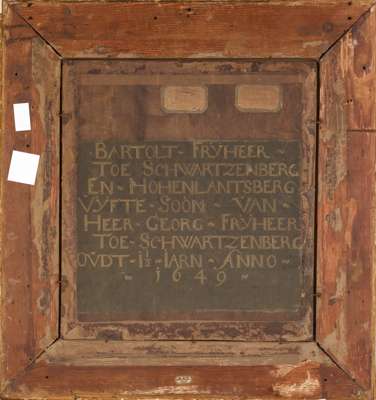 BARTOLT - FRŸHEER -
TOE SCHWARTZENBERG
EN - HOHENLANTSBERG
VŸFTE - SOÒN - VAN -
HEER - GEORG - FRŸHEER
TOE - SCHWARTZENBERG
OVDT - 1½ - IARN - ANNO -
- 1649 -